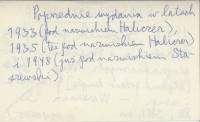 Poprzednie wydania w latach
1933 (pod nazwiskiem Haliczer),
1935 (też pod nazwiskiem Haliczer)
i 1948 (już pod nazwiskiem Sta-
szewski).